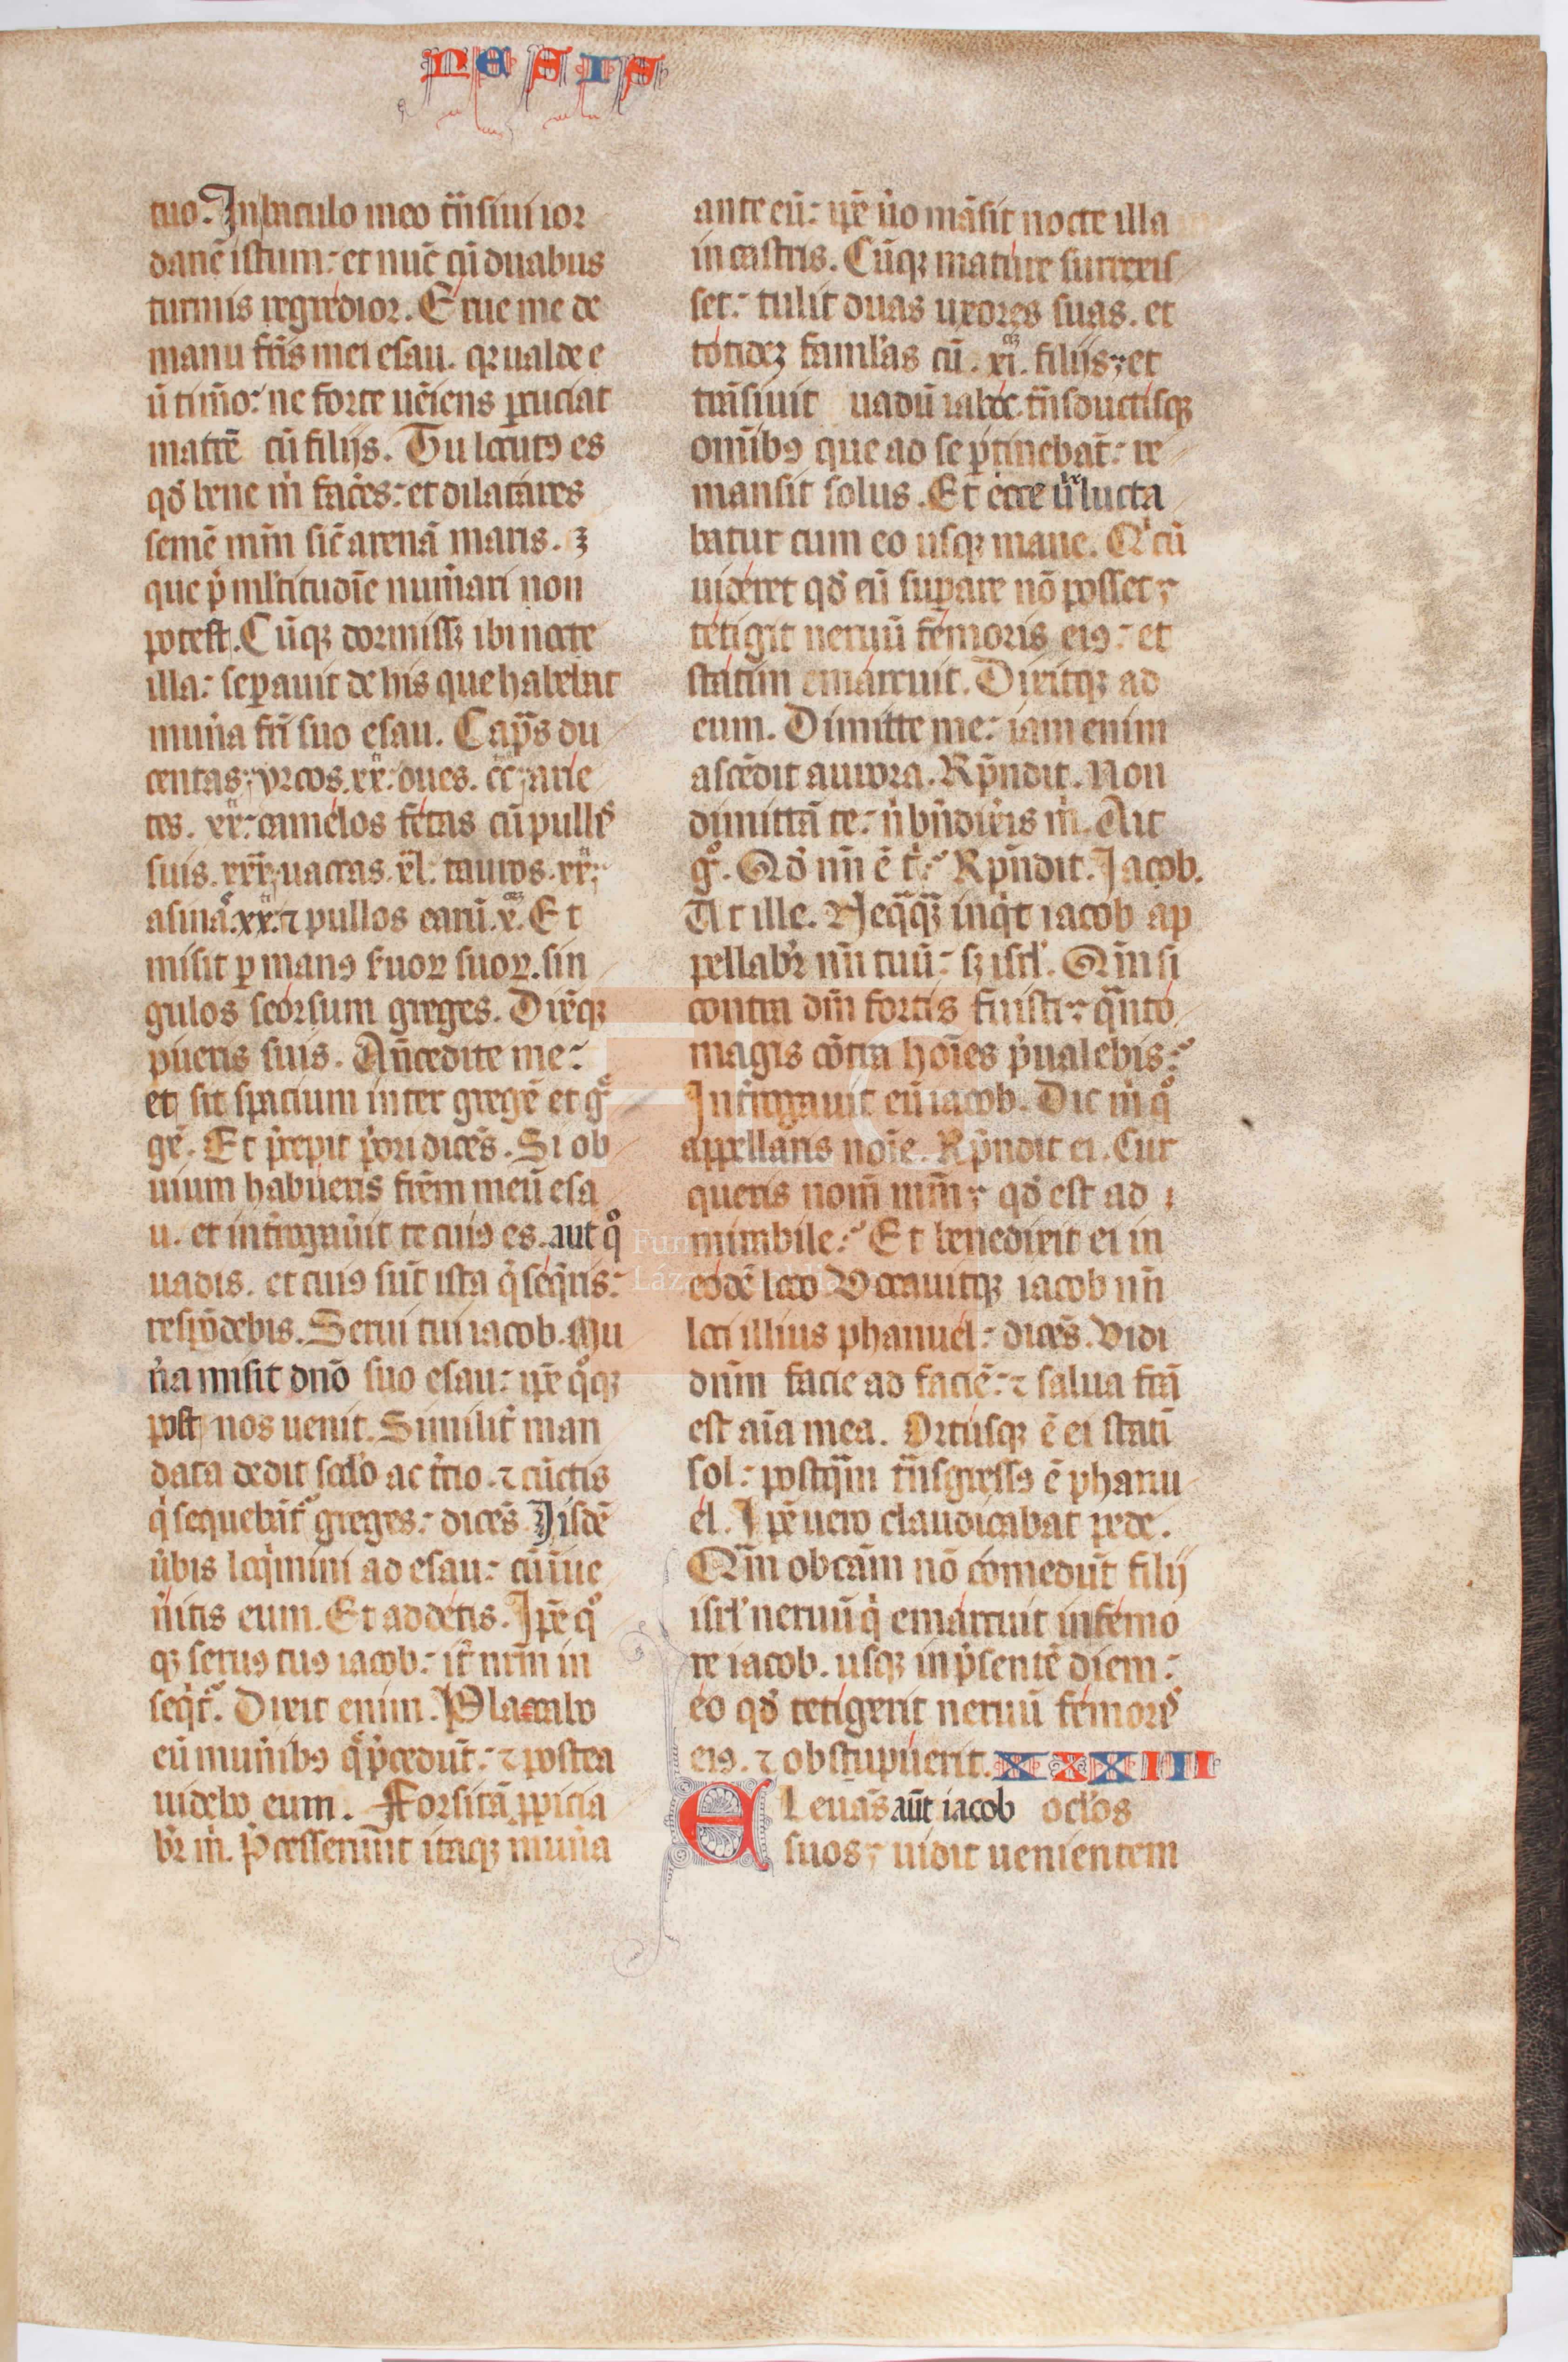 NESIS
tuo. In baculo meo tn̄siui ior
danē istum: et nūc cū duabus
turmis regredior. Erue me de
manu fr̄is mei esau. qz ualde e
ū timeo: ne forte ueīens ꝑcuciat
matrē cū filijs. Tu locutꝯ es
qd̄ bene m̄ faceres: et dilatares
semē mm̄ sic̄ arenā maris. ⁊
que p̄ ml̄titudīe num̄ari non
potest. Cūqz dormiss⁊ ibi nocte
illa: seꝑauit de his que habebat
mun̄a fr̄i suo esau. Cap̄s du
centas: yrcos. xx: oues. cc: arie
tes. xx: camelos fetas cū pullis
suis. xxx: uaccas. xl: tauros. xx:
asinas. xx. ⁊ pullos earū. x. Et
misit ꝑ manꝯ ẜuoꝝ suoꝝ. sin
gulos seorsum greges. Dixitqz
pueris suis. An̄cedite me:
et sit spacium inter gregē et gͤ
gē. Et p̄cepit p̄ori dicēs. Si ob
uium habueris frēm meū esa
u. et int̄rogauit te cuiꝯ es. aut qͦ
uadis. et cuiꝯ sūt ista q̄ seq̄ris:
respōdebis. Serui tui iacob. Mu
n̄a misit dn̄o suo esau: ip̄e qͦqz
post nos uenit. Similit̄ man
data dedit scd̄o ac t̄cio. ⁊ cūctis
q̄ sequebāt̄ greges: dicēs. Iisdē
ūbis loq̄mini ad esau: cū īue
n̄itis eum. Et addetis. Ip̄e qͦ
qz seruꝯ tuꝯ iacob: it̄ nrm̄ in
seq̄t̄. Dixit enim. Placabo
eū munibꝯ q̄ p̄cedūt: ⁊ postea
uidebo eum. Forsitā ꝓpicia
br̄ m̄. P̄cesserunt itaqz mun̄a
ante eū: ip̄e ūo māsit nocte illa
in castris. Cūqz mature surrexis
set: tulit duas uxores suas. et
totidez famlas cū. xi. filijs: et
trānsiuit uadū iaboc. tn̄sductisqz
omībꝯ que ad se ꝑtinebāt: re
mansit solus. Et ecce uͥr lucta
batur cum eo usqz mane. Q̄ cū
uideret qd̄ eū suꝑare nō posset:
tetigit neruū femoris eiꝯ: et
statim emarcuit. Dixitqz ad
eum. Dimitte me: iam enim
ascēdit aurora. Rn̄dit. Non
dimittā te: n̄ bn̄dixeris m̄. Ait
gͦ. Qd̄ nn̄ ē t̄: Rn̄dit. Jacob.
At ille. Neqq̄ inq̄t iacob ap
pellabr̄ nn̄ tuū: sz isrl̄. Qm̄ si
contra dm̄ fortis fuisti: qn̄to
magis cōtra hoīes p̄ualebis:
Int̄rogauit eū iacob. Dic m̄ qͦ
appellaris noīe. Rn̄dit ei. Cur
queris nom̄ mm̄: qd̄ est ad
mirabile: Et benedixit ei in
eodē loco Vocauitqz iacob nn̄
loci illius phanuel: dicēs. Vidi
dn̄m facie ad faciē: ⁊ salua fca
est aīa mea. Ortusqz ē ei statī
sol: postqm̄ tn̄sgressꝯ ē phanu
el. Ip̄e uero claudicabat pede.
Qm̄ ob cām nō comedūt filij
isrl̄ neruū q̄ emarcuit in femo
re iacob. usqz in p̄sentē diem:
eo qd̄ tetigerit neruū femoris
eiꝯ. ⁊ obstupuerit. XXXIII
Eleuās aūt iacob oclos
suos: uidit uenientem